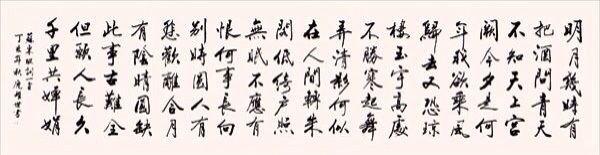 明月幾時有
把酒問青天
不知天上宮
闕今夕是何
年我欲乘風
歸去又恐瓊
樓玉宇高處
不勝寒起舞
弄清影何似
在人間轉朱
閣低綺戶照
無眠不應有
恨何事長向
別時圓人有
悲歡離合月
有陰晴圓缺
此事古難全
但願人長久
千里共嬋娟
蘇東坡詞一首
丁亥年秋